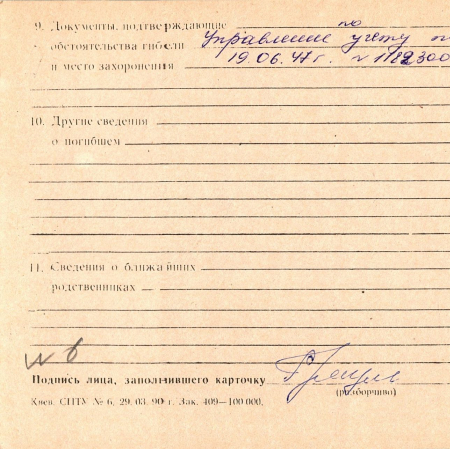 9. Документы, подтверждающие по
обстоятельства гибели Управление учету п
и место захоронения 19.06.47 г. N 1182300
10. Другие сведения
о погибшем
11. Сведения о ближайших
родственниках
N 6
Подпись лица, заполнившего карточку
(разборчиво)
Киев. СПТУ № 6. 29. 03. 90 г. Зак. 409—100 000.